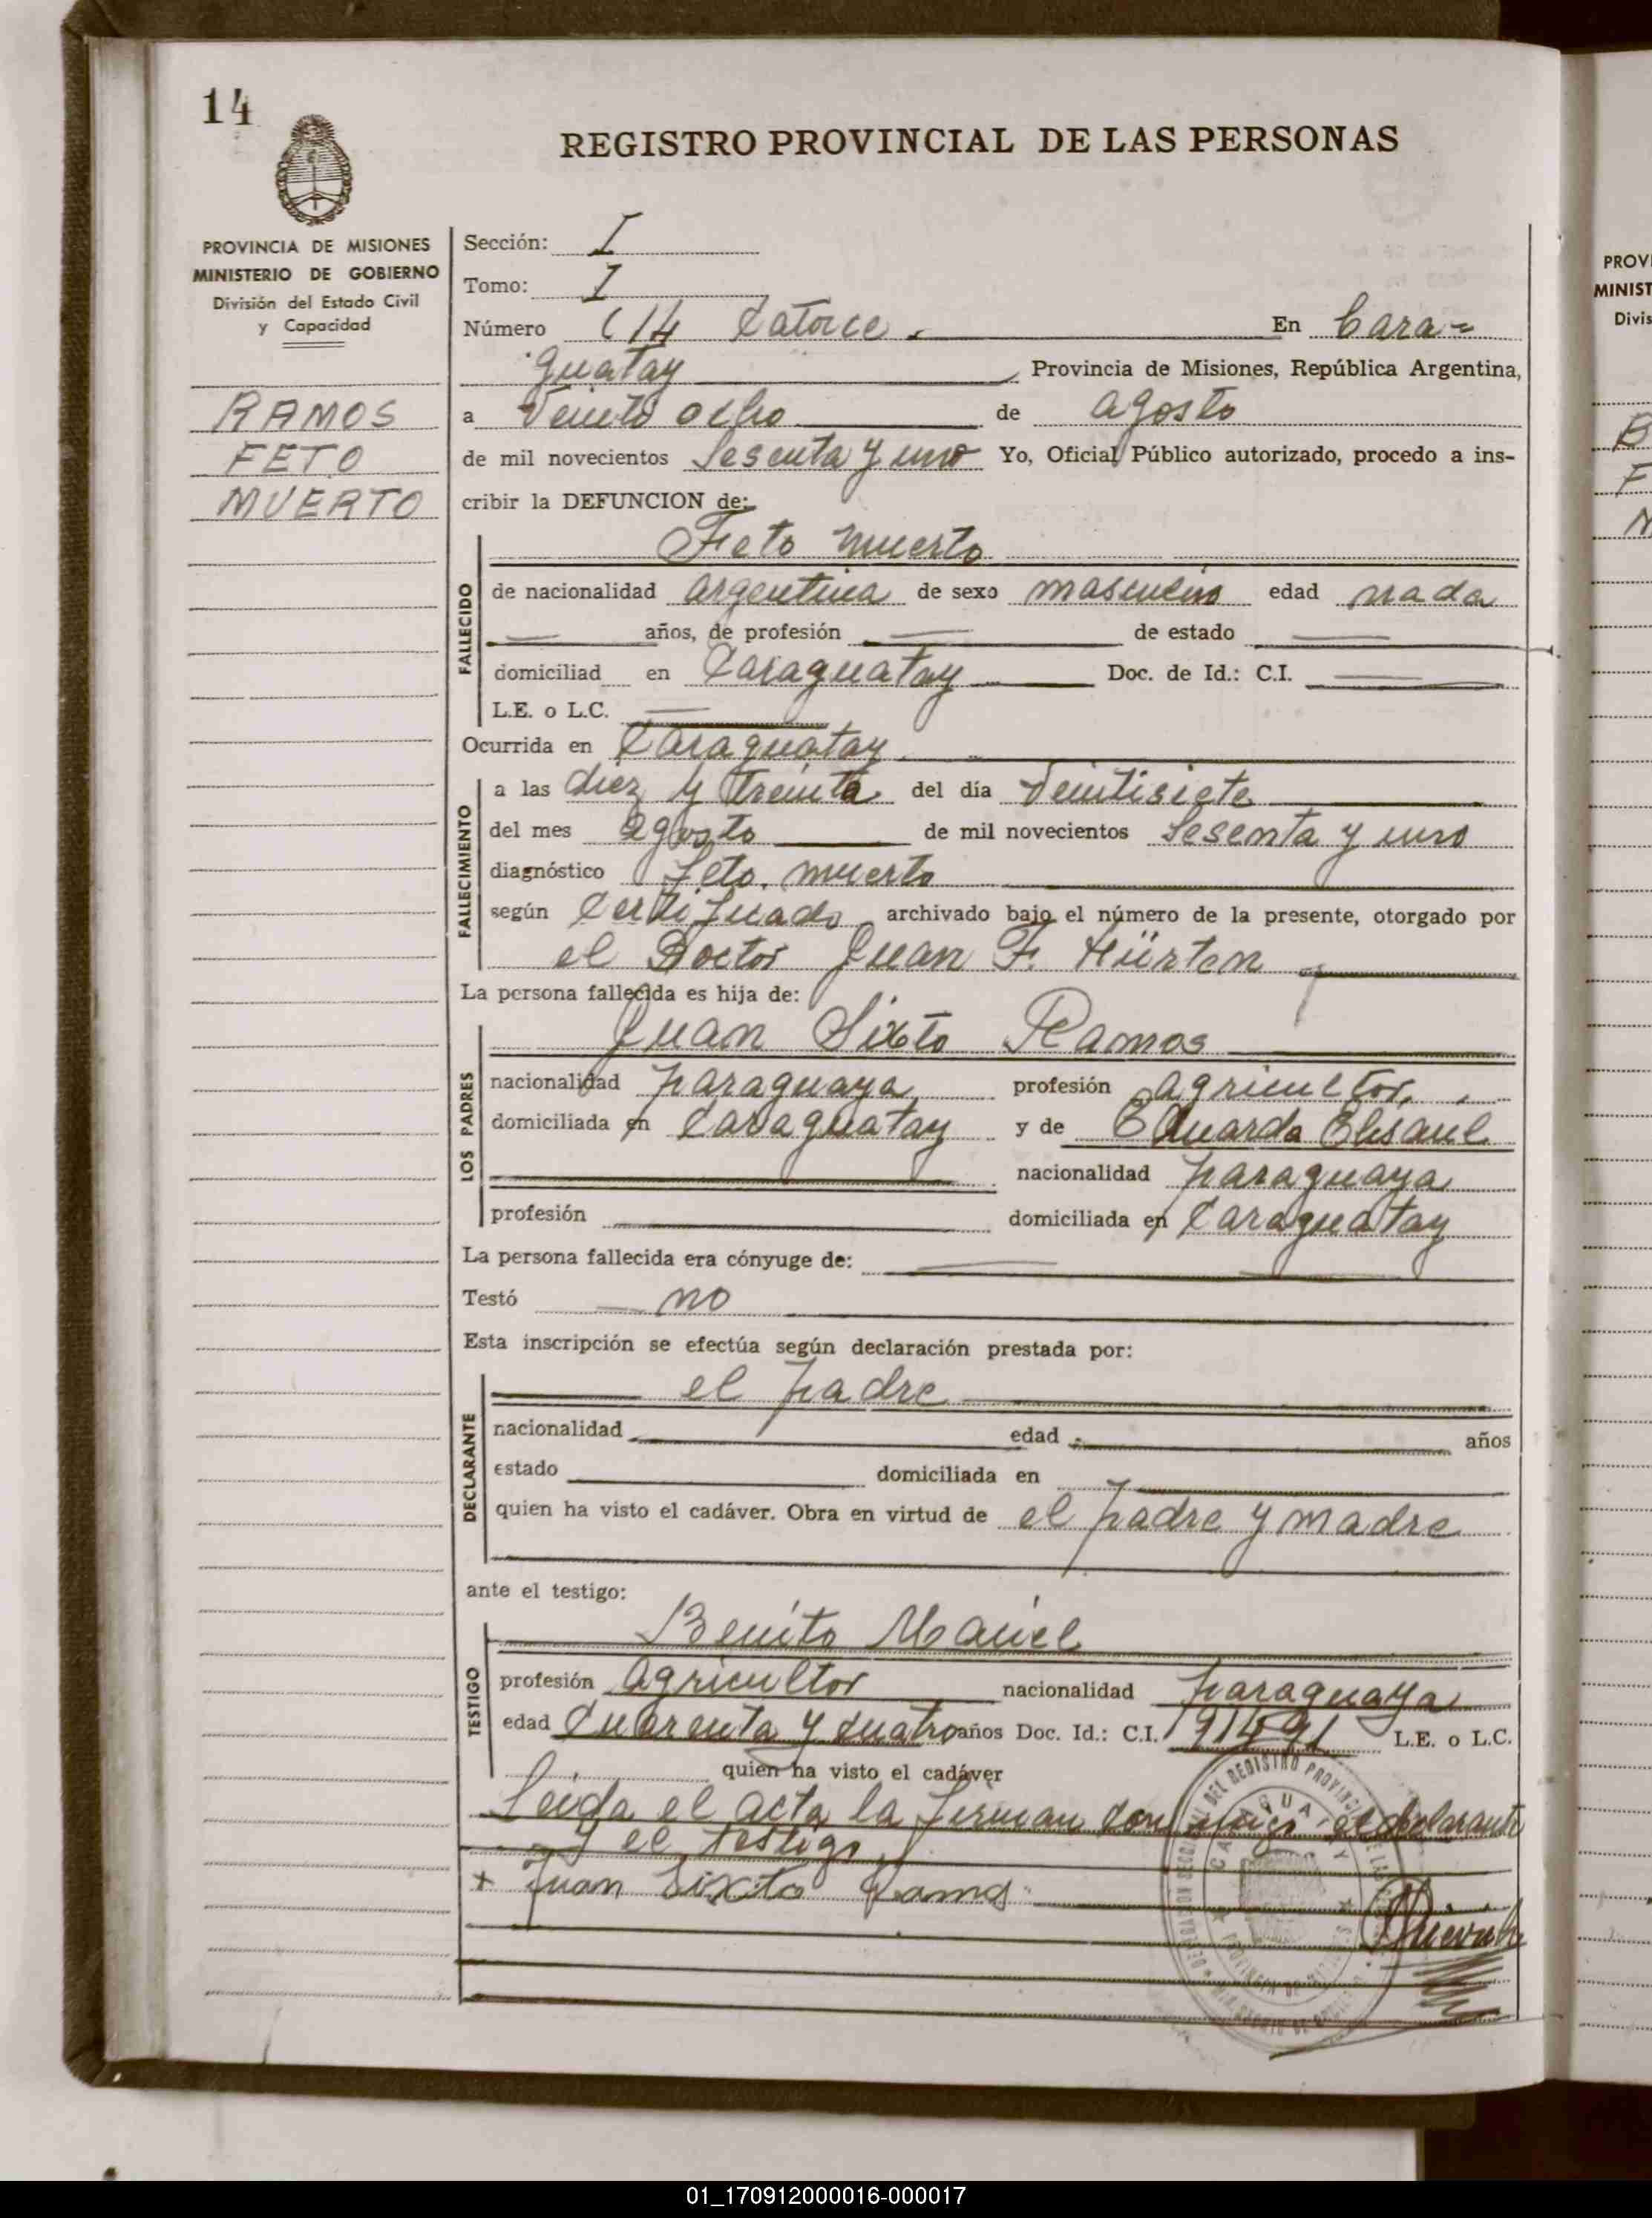 14
REGISTRO PROVINCIAL DE LAS PERSONAS
PROVINCIA DE MISIONES
MINISTERIO DE GOBIERNO
División del Estado Civil
y Capacidad
RAMOS
FETO
MUERTO
Sección: I
Tomo: I
Número (14 Catorce. En Cara=
guatay Provincia de Misiones, República Argentina,
a Veinte ocho de agosto
de mil novecientos Sesenta y uno Yo, Oficial Público autorizado, procedo a ins-
cribir la DEFUNCION de:
Feto muerto
FALLECIDO
de nacionalidad argentina de sexo masculino edad nada
años, de profesión de estado
domiciliad en Caraguatay Doc. de Id.: C.I.
L.E. o L.C.
Ocurrida en Caraguatay
FALLECIMIENTO
a las diez y treinta del día Veintisiete
del mes agosto de mil novecientos Sesenta y uno
diagnóstico feto muerto
según Certificado archivado bajo el número de la presente, otorgado por
el Doctor Juan F. Hürten
La persona fallecida es hija de:
LOS PADRES
Juan Sixto Ramos
nacionalidad paraguaya profesión agricultor.
domiciliada en Caraguatay y de Eduarda
nacionalidad paraguaya
profesión domiciliada en Caraguatay
La persona fallecida era cónyuge de:
Testó no
Esta inscripción se efectúa según declaración prestada por:
DECLARANTE
el padre
nacionalidad edad años
estado domiciliada en
quien ha visto el cadáver. Obra en virtud de el padre y madre
ante el testigo:
TESTIGO
Benito
profesión agricultor nacionalidad paraguaya
edad Cuarenta y cuatro años Doc. Id.: C.I. L.E. o L.C.
quien ha visto el cadáver
Leida el acta la firman con el declarante
y el testigo
+ Juan Sixto Ramos
PROV
MINIST
Divis
01_170912000016-000017